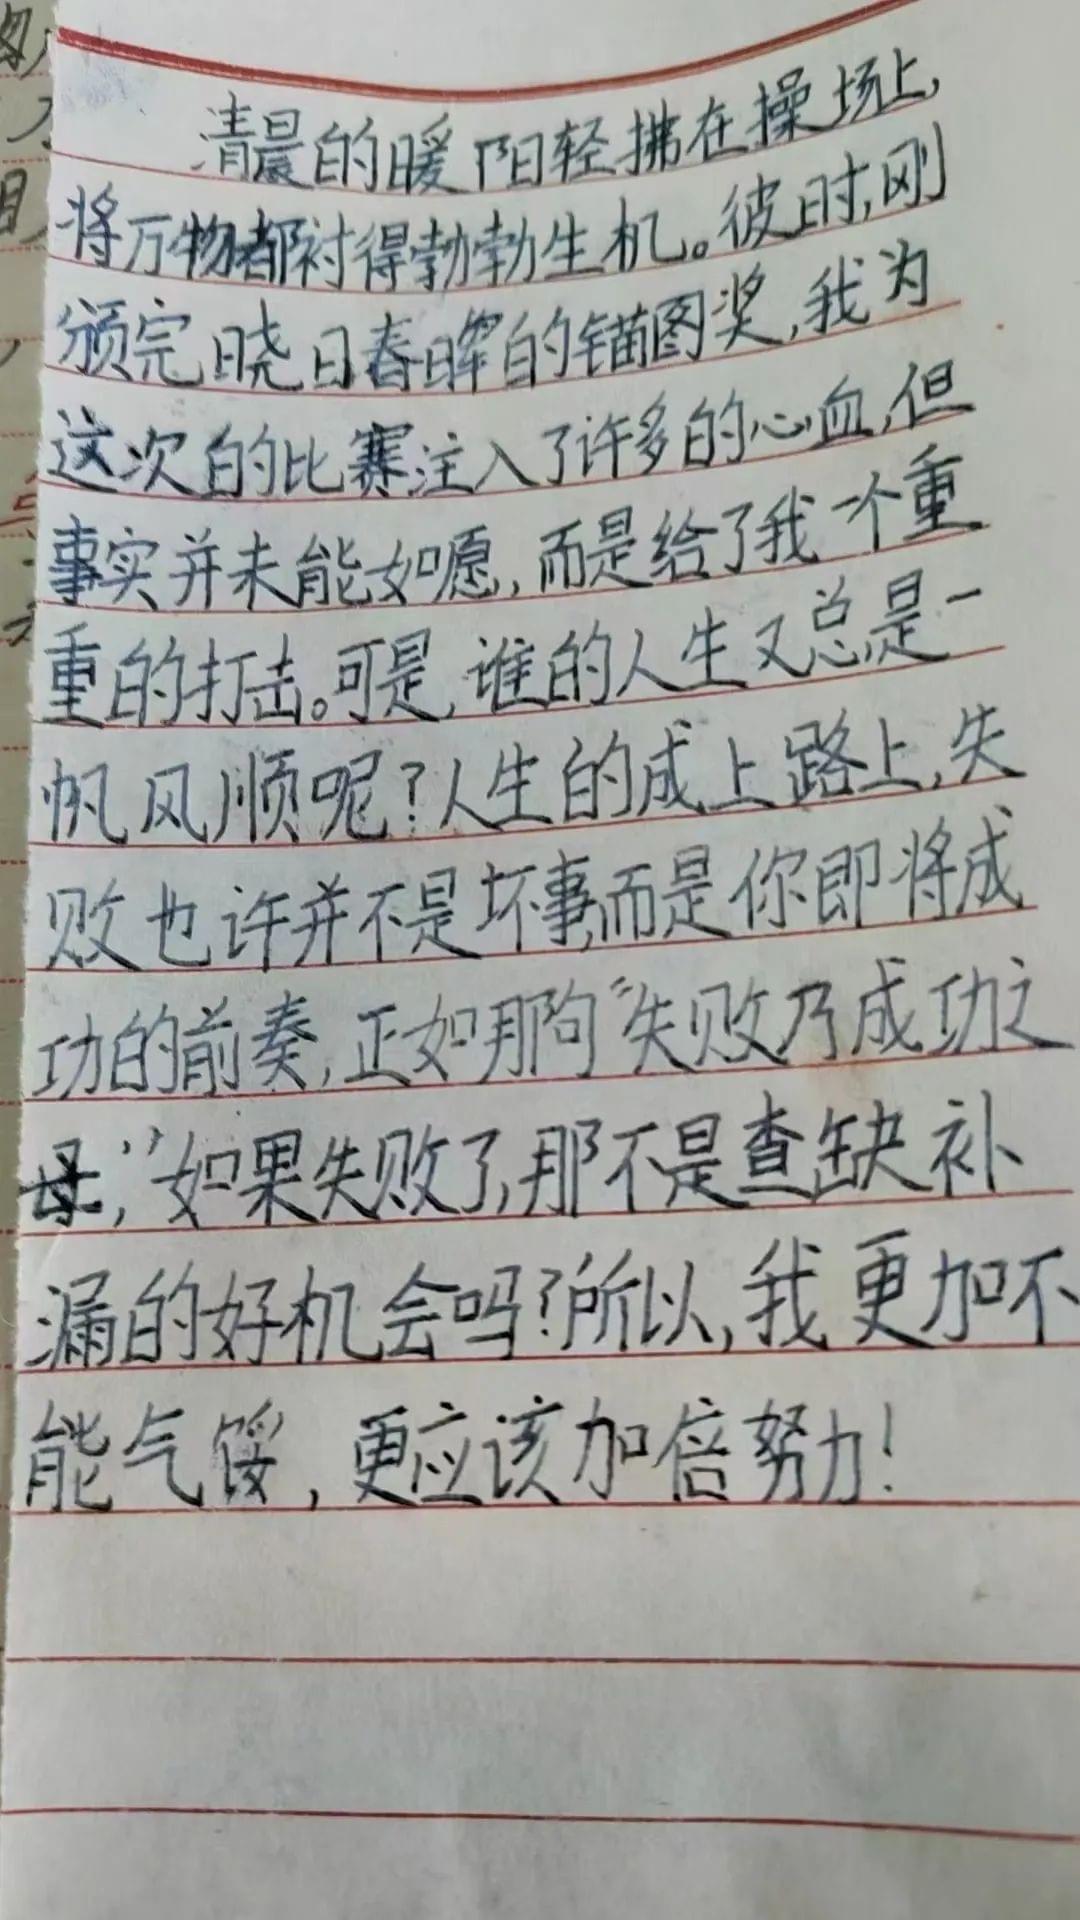 清晨的暖阳轻拂在操场上,
将万物都衬得勃勃生机。彼时,刚
颁完晓日春晖的锚图奖,我为
这次的比赛注入了许多的心血,但
事实并未能如愿,而是给了我一个重
重的打击。可是,谁的人生又总是一
帆风顺呢?人生的成上路上,失
败也许并不是坏事,而是你即将成
功的前奏,正如那句“失败乃成功之
母,”如果失败了,那不是查缺补
漏的好机会吗?所以,我更加不
能气馁,更应该加倍努力!